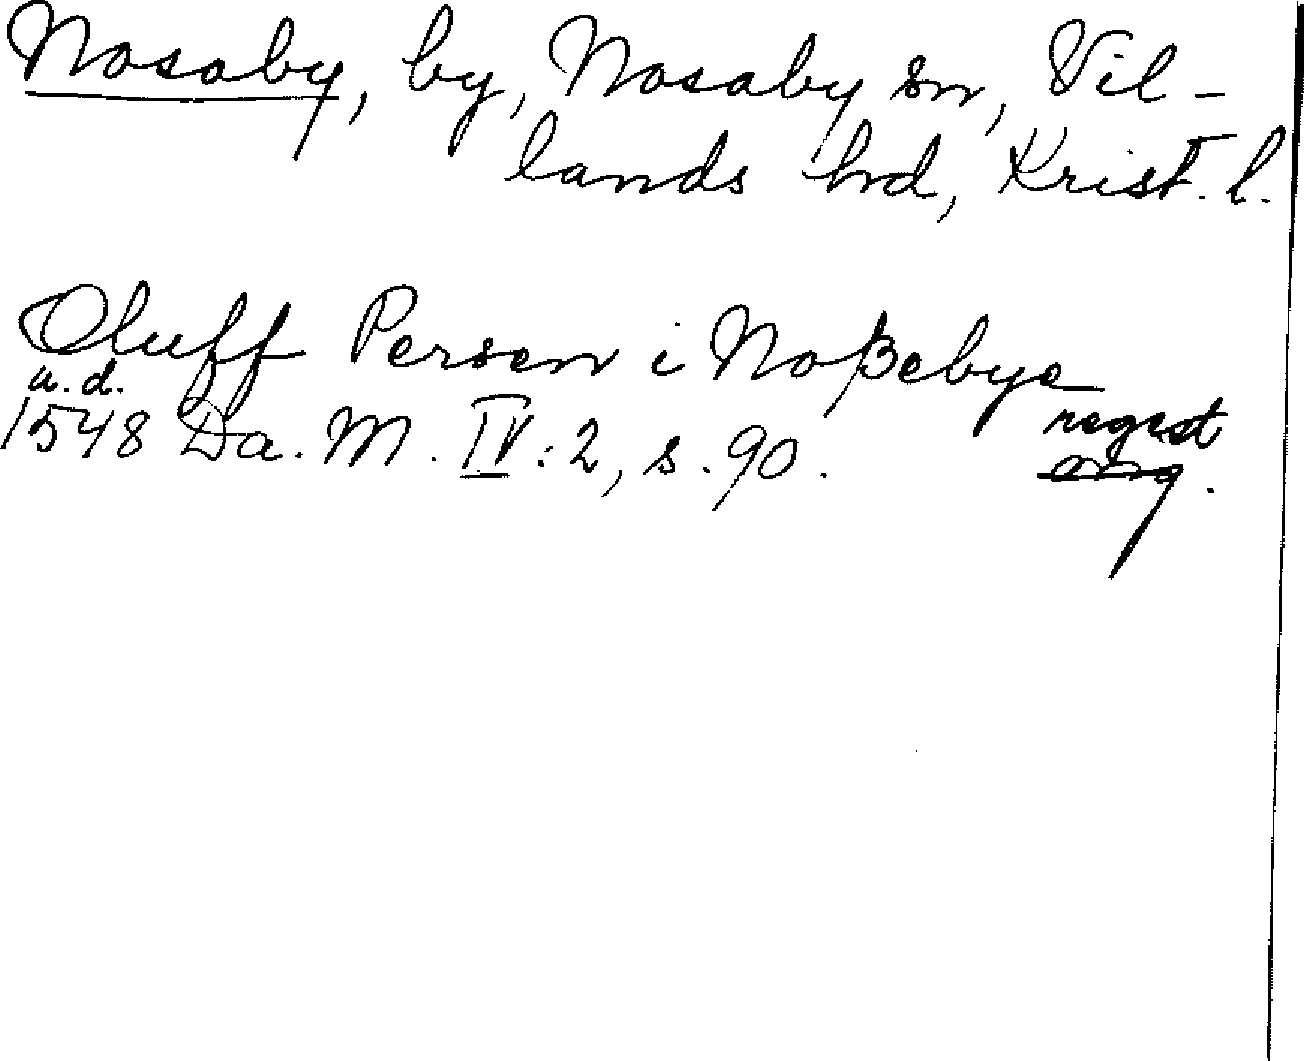 Nosaby, by, Nosaby sn, Vil-
lands hrd, Krist. l.
Oluff Persen i Noßebye
a. d.
1548 Da. M. IV: 2, s. 90. regest
orig.